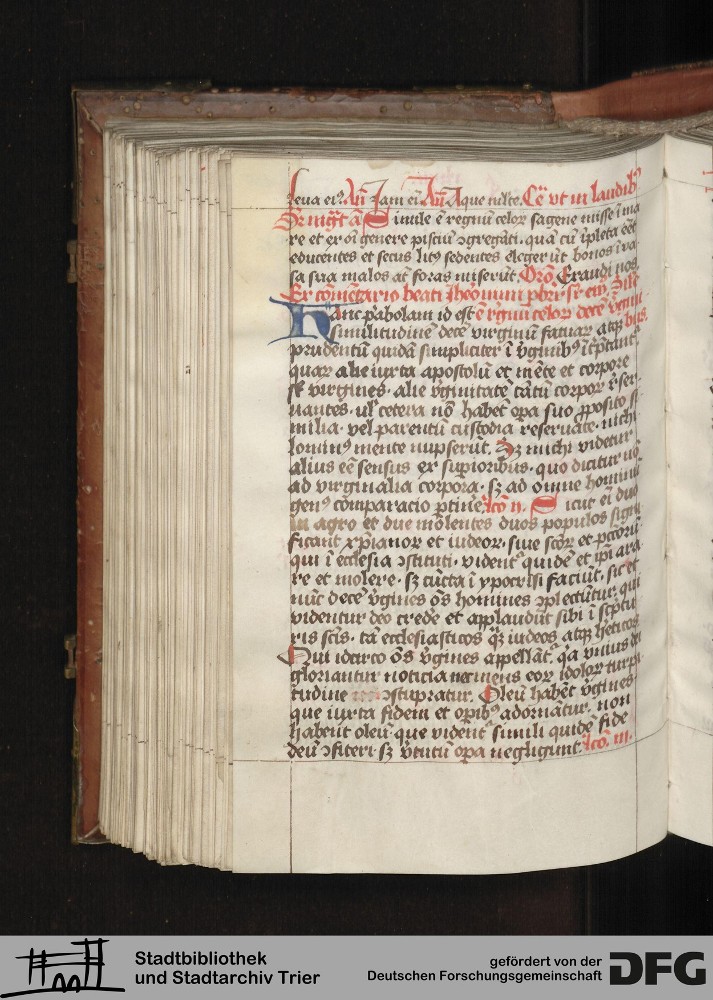 leua eiꝰ. Añ Jam eī Añ Aque mlte. Ce᷑ vt in laudibꝰ
Sr mg̅t a̅ Simile ē regnū celoꝝ sagene misse ī ma
re et ex oī genere pisciū ꝯgregāti. quā cū īpleta eēt
educentes et secus litꝰ sedentes elegerūt bonos ī va
sa sua malos at̄ foras miserūt. Oro̅. Exaudi nos
Ex cōmētario beati Jheonimi pbr̄
Hanc p̄abolam id est ē regnū celoꝝ decē v̄gini
similitudinē decē virginū fatuaꝝ atqꝫ bus.
prudentū quidā simpliciter ī v̄ginibꝰ īt̄p̄tant̄
quaꝝ alie iuxta apostolū et mēte et corpore
sūt virgines. alie v̄ginitatē tātū corpoꝝ r̄ser
uantes. ul̓ cetera nō habēt oꝑa suo ꝓposito si
milia. vel parentū custodia reseruate. nichi
lominꝰ mente nupserūt. Sꝫ michi videtur
alius eē sensus ex suꝑioribus. quo dicitur nō
ad virginalia corpora. sꝫ ad omne hominū
genꝰ cōmparacio ꝑtine᷑. Lcō. ii. Sicut eī duo
in agro et due molentes duos populos signi
ficant xp̄ianoꝝ et iudeoꝝ. siue scōꝝ et pccōrū
qui ī ecclesia ꝯstituti. vident̄ quidē et ip̄i ara
re et molere. sꝫ cūcta ī ypocrisi faciūt. sic et
nūc decē v̄gines oēs homines ꝯplectūtur. qui
videntur deo credē et applaudūt sibi ī sc̄ptu
ris sctīs. tā ecclesiasticos qͣꝫ iudeos atqꝫ he̅ticos
Qui idcirco oēs v̄gines appellāt̄. qͣa vnius dei
gloriantur noticia nec mens eoꝝ idoloꝝ turpi
tudine ꝯstupratur. Oleū habēt v̄gines
que iuxta fidem et oꝑibꝰ adornātur. non
habent oleū. que vident̄ simili quidē fide
deū ꝯfiteri. sꝫ v̄tutū oꝑa negligunt. Lcō. iii.
Stadtbibliothek
und Stadtarchiv Trier
gefördert von der
Deutschen Forschungsgemeinschaft
DFG